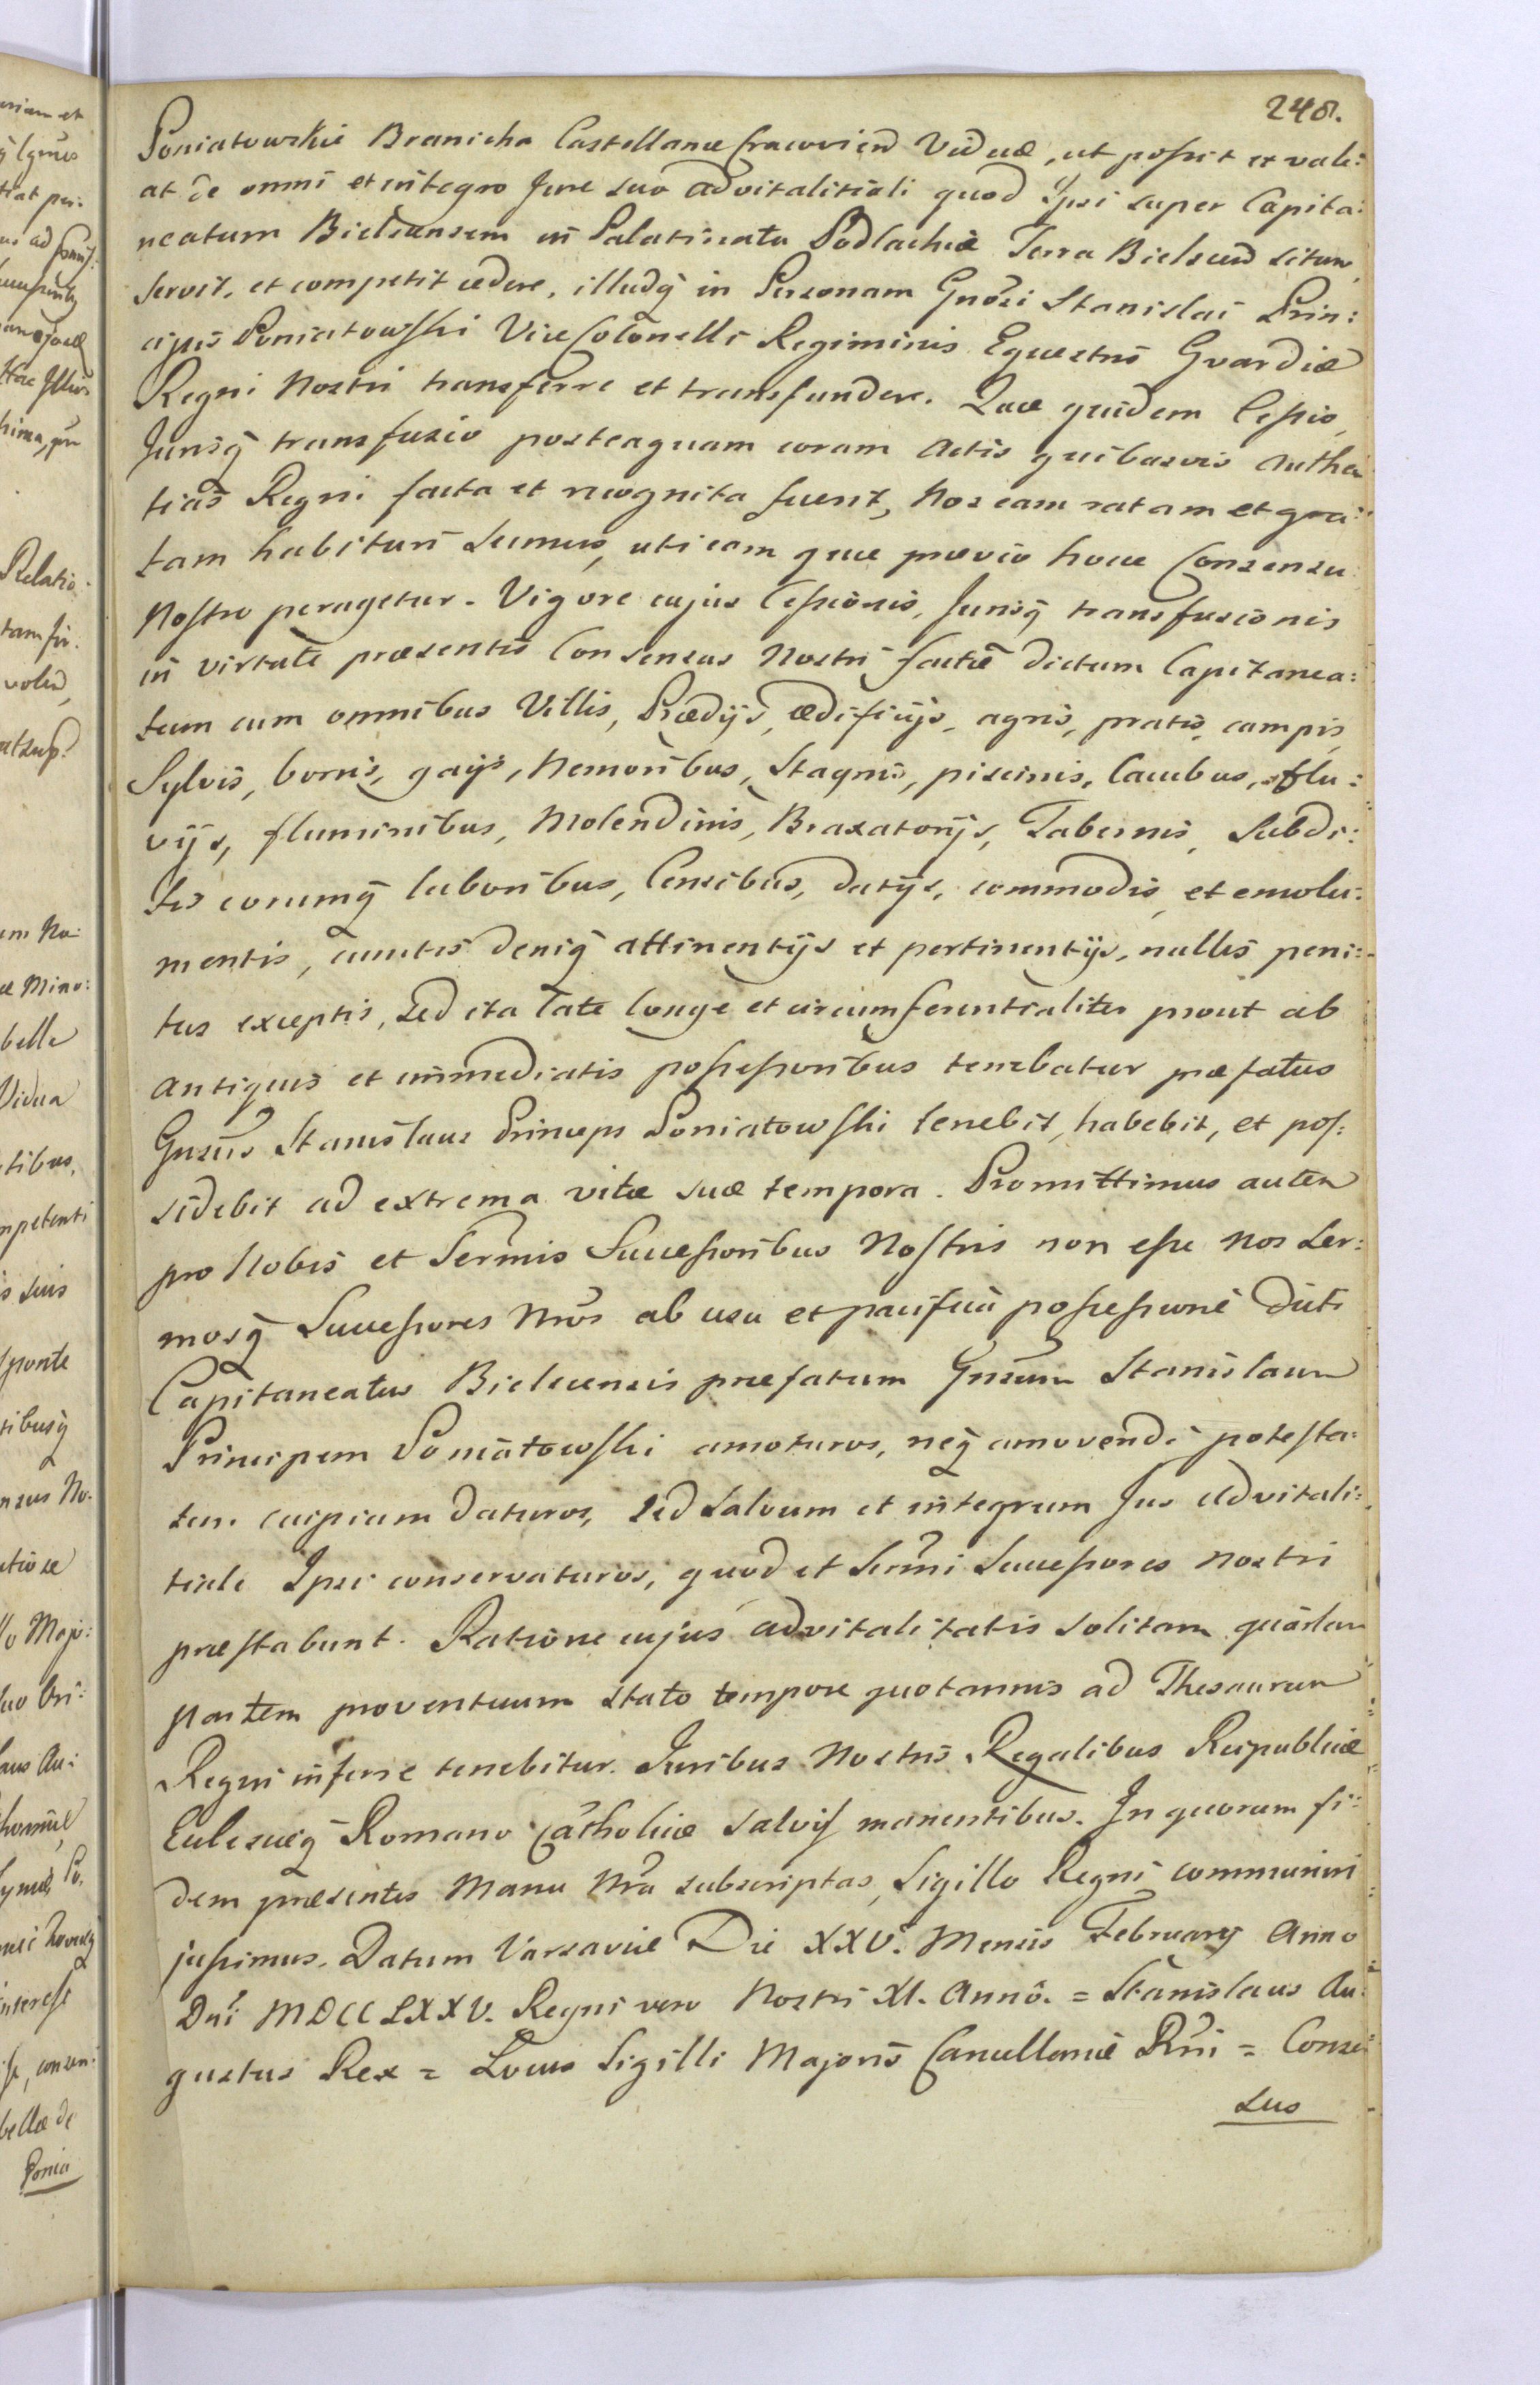 248.
Poniatowskie Branicka Castellanæ Cracovien Viduæ, ut possit et vale:
at de omni et integro Jure suo advitalitiali quod Ipsi super Capita:
neatum Bielscensem in Palatinatu Podlachiæ Terra Bielscen situm
servit, et competit cedere, illudq in Personam Gnosi Stanislai Prin:
cipis Poniatowski Vice Colonelli Regiminis Equestris Gvardiæ
Regni Nostri transferre et transfundere. Quæ quidem Cessio,
Jurisq transfusio posteaquam coram Actis quibusvis Authen
ticis Regni facta et recognita fuerit, Nos eam ratam et gra:
tam habituri sumus, uti eam quæ prævio hocce Consensu
Nostro peragetur. Vigore cujus Cessionis, Jurisq transfusionis
in virtute præsentis Consensus Nostri factæ dictum Capitanea:
tum cum omnibus Villis, Prædijs, ædificijs, agris, pratis, campis,
Sylvis, borris, gajis, Nemoribus, Stagnis, piscinis, lacubus, flu:
vijs, fluminibus, Molendinis, Braxatorijs, Tabernis, Subdi:
tis eorumq laboribus, Censibus, datijs, commodis, et emolu:
mentis, cunctis deniq attinentijs et pertinentijs, nullis peni:
tus exceptis, sed ita late longe et circumferentialiter prout ab
antiquis et immediatis possessoribus tenebatur præfatus
Gnsus Stanislaus Princeps Poniatowski tenebit, habebit, et pos:
sidebit ad extrema vitæ suæ tempora. Promittimus autem
pro Nobis et Sermis Successoribus Nostris non esse nos Ser:
mosq Successores Nros ab usu et pacifica possessione dicti
Capitaneatus Bielscensis præfatum Gnsum Stanislaum
Principem Poniatowski amoturos, neq amovendi potesta:
tem cuipiam daturos, sed salvum et integrum Jus advitali:
tiale Ipsi conservaturos, quod et Sermi Successores Nostri
præstabunt. Ratione cujus advitalitatis solitam quartam
partem proventuum stato tempore quotannis ad Thesaurum
Regni inferre tenebitur. Juribus Nostris Regalibus Reipublicæ
Ecclesiæq Romano Catholicæ salvis manentibus. In quorum fi:
dem præsentes Manu Nra subscriptas, Sigillo Regni communiri
jussimus. Datum Varsaviæ Die XXV. Mensis February Anno
Dni MDCCLXXV. Regni vero Nostri XI. Anno. = Stanislaus Au:
gustus Rex = Locus Sigilli Majoris Cancellariæ Rni = Consen
sus